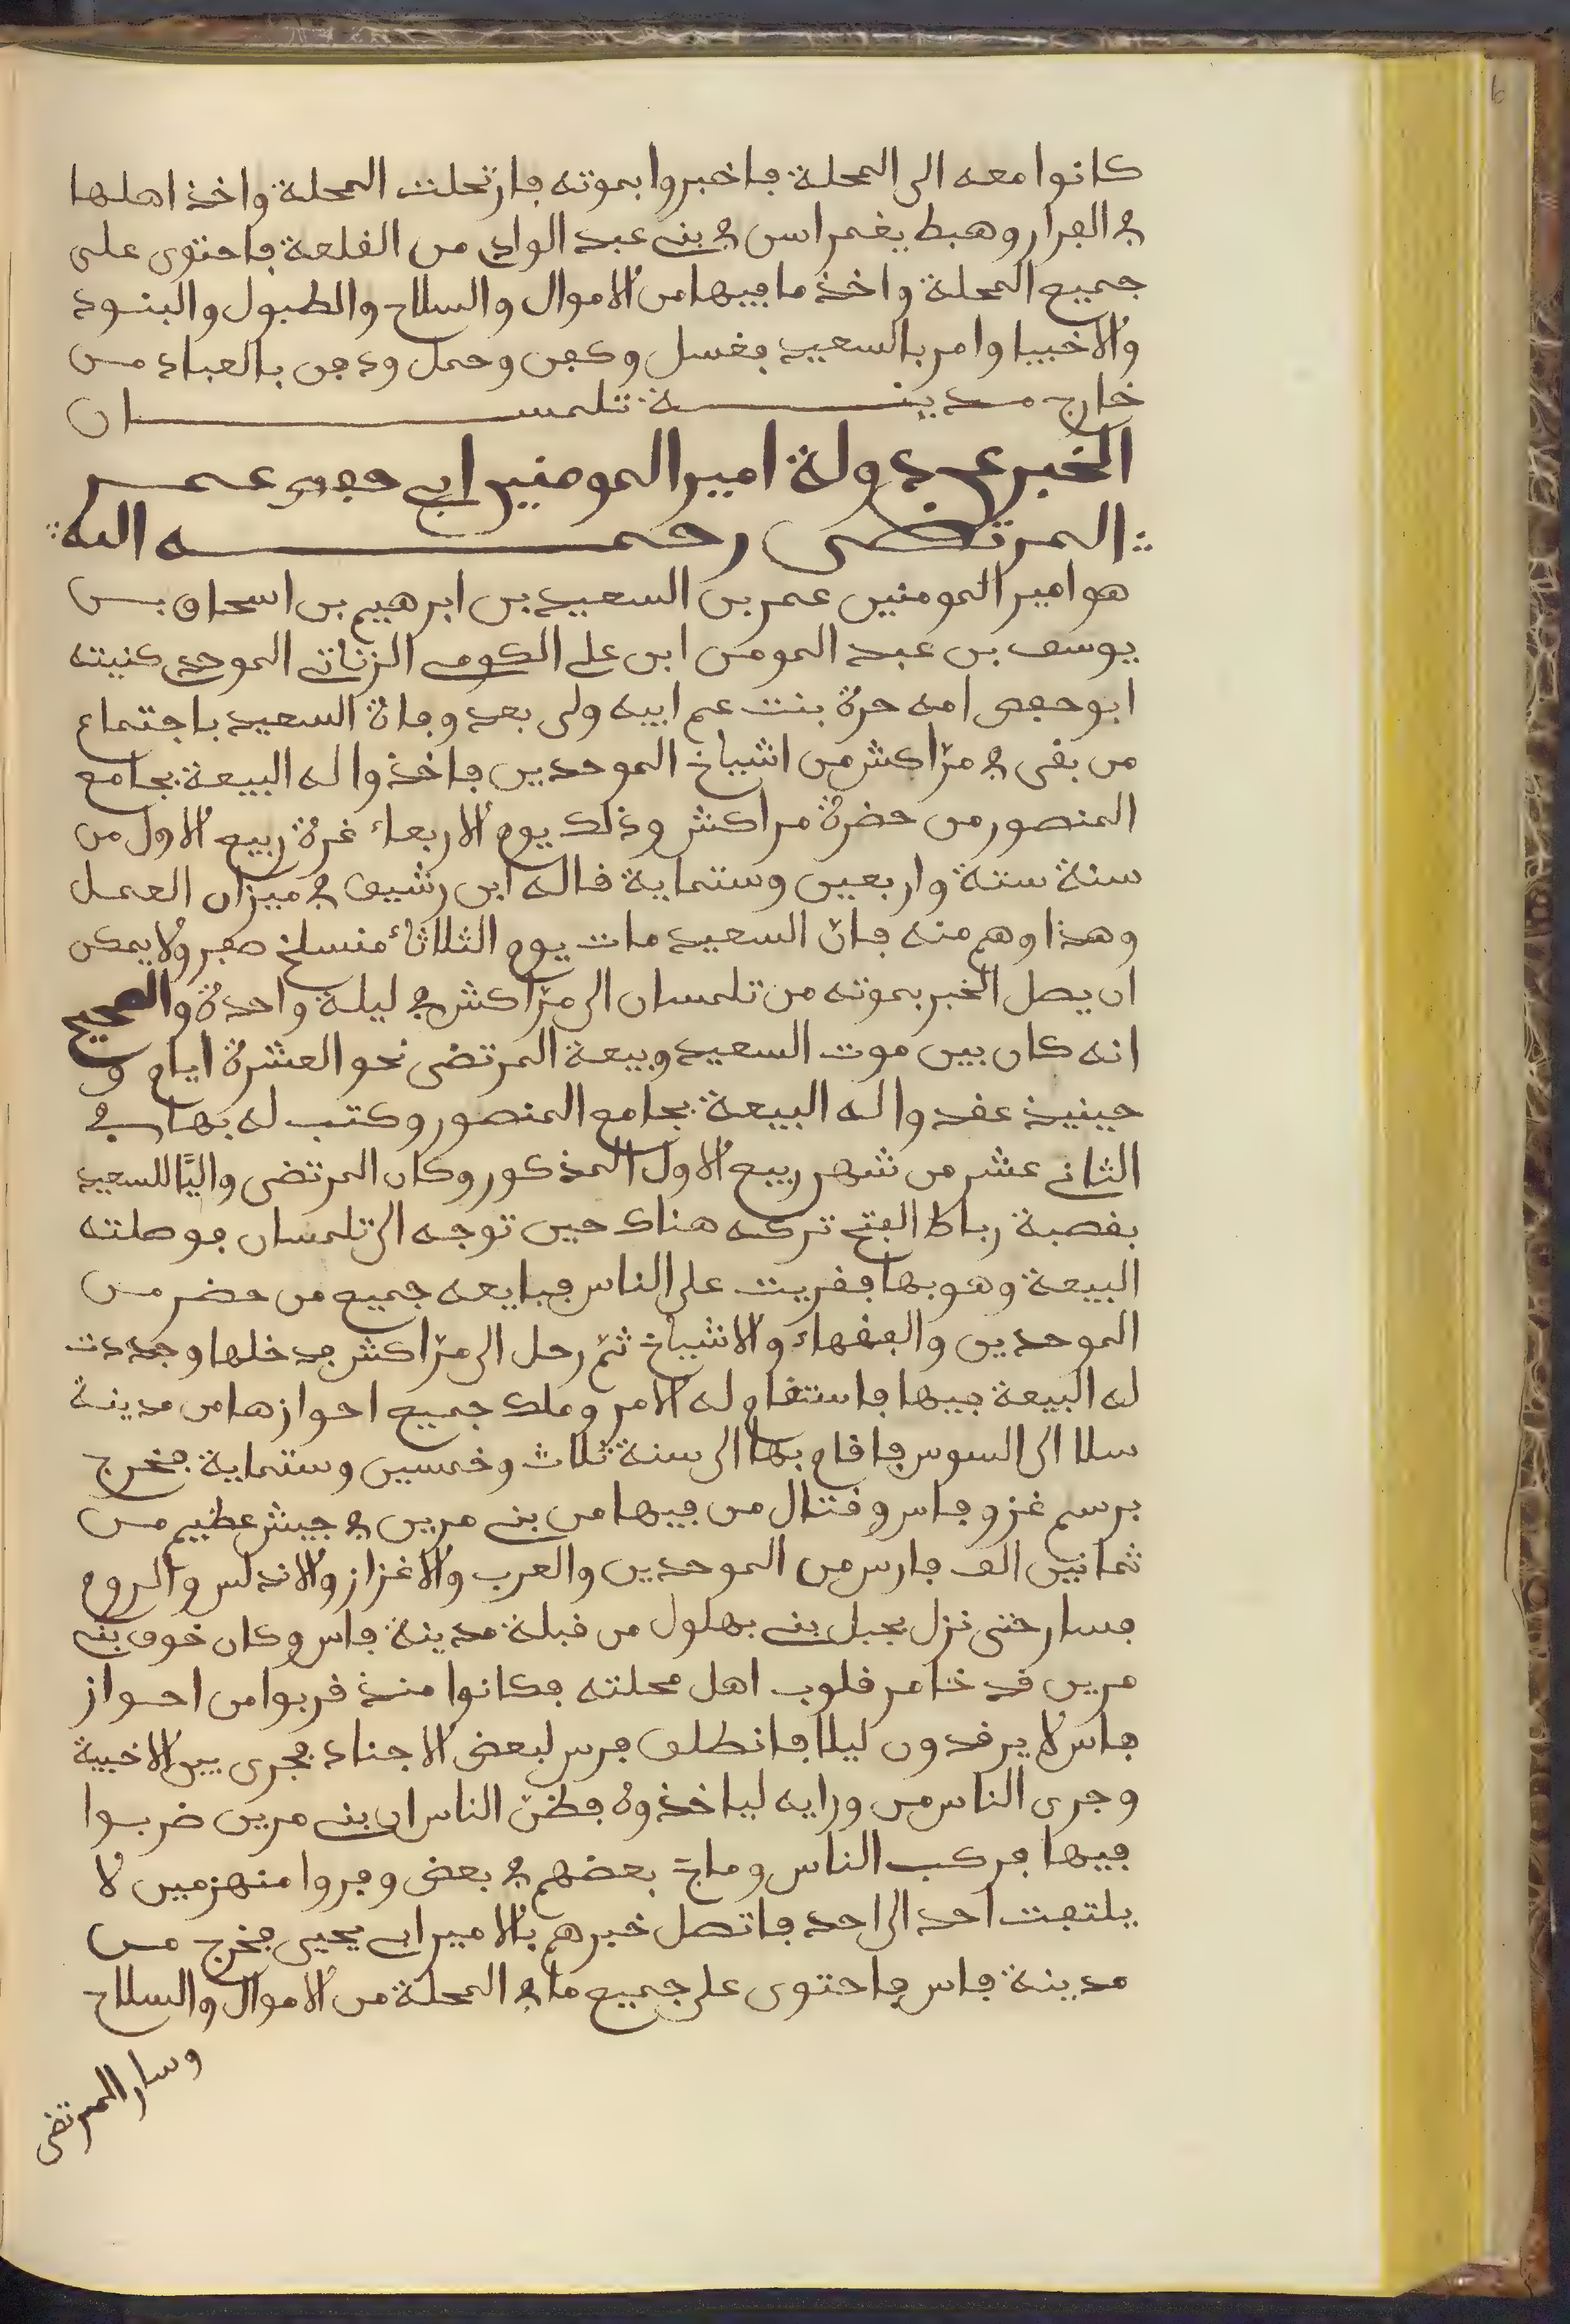 كانوا معه الى المحلة فاخبروا بموته فارتحلت المحلة واخذ اهلها
في الفرار وهبط يغمراسن في بني عبد الوادي من القلعة فاحتوى على
جميع المحلة واخذ ما فيها من الاموال والسلاح والطبول والبنود
والاخبيا وامر بالسعيد فغسل وكفن وحمل ودفن بالعباد من
خارج مدينة تلمسان
الخبر عن دولة امير المومنين ابي حفص عمر
المرتضى رحمه الله
هو امير المومنين عمر بن السعيد بن ابرهيم بن اسحاق بن
يوسف بن عبد المومن ابن علي الكومي الزناتي الموحدي كنيته
ابو حفص امه حرة بنت عم ابيه ولى بعد وفاة السعيد باجتماع
من بقى في مرّاكش من اشياخ الموحدين فاخذوا له البيعة بجامع
المنصور من حضرة مراكش وذلك يوم الاربعاء غرة ربيع الاول من
سنة ستة واربعين وستماية قاله ابن رشيق في ميزان العمل
وهذا وهم منه فانّ السعيد مات يوم الثلاثاء منسلخ صفر ولا يمكن
ان يصل الخبر بموته من تلمسان الى مرّاكش في ليلة واحدة والصحيح
انه كان بين موت السعيد وبيعة المرتضى نحو العشرة ايام و
حينيذ عقدوا له البيعة بجامع المنصور وكتب له بها في
الثاني عشر من شهر ربيع الاول المذكور وكان المرتضى واليًا للسعيد
بقصبة رباط الفتح تركه هناك حين توجه الى تلمسان فوصلته
البيعة وهو بها فقريت على الناس فبايعه جميع من حضر من
الموحدين والفقهاء والاشياخ ثمّ رحل الى مرّاكش فدخلها وجددت
له البيعة فيها فاستقام له الامر وملك جميع احوازها من مدينة
سلا الى السوس فاقام بها الى سنة ثلاث وخمسين وستماية فخرج
برسم غزو فاس وقتال من فيها من بني مرين في جيش عظيم من
ثمانين الف فارس من الموحدين والعرب والاغزاز والاندلس والروم
فسار حتى نزل بجبل بني بهلول من قبلة مدينة فاس وكان خوف بني
مرين قد خامر قلوب اهل محلته فكانوا منذ قربوا من احواز
فاس لا يرقدون ليلا فانطلق فرس لبعض الاجناد فجرى بين الاخبية
وجرى الناس من ورايه لياخذوه فظنّ الناس ان بني مرين ضربوا
فيها فركب الناس وماج بعضهم في بعض وفروا منهزمين لا
يلتفت احد الى احد فاتصل خبرهم بالامير ابي يحيى فخرج من
مدينة فاس فاحتوى على جميع ما في المحلة من الاموال والسلاح
وسار المرتضى